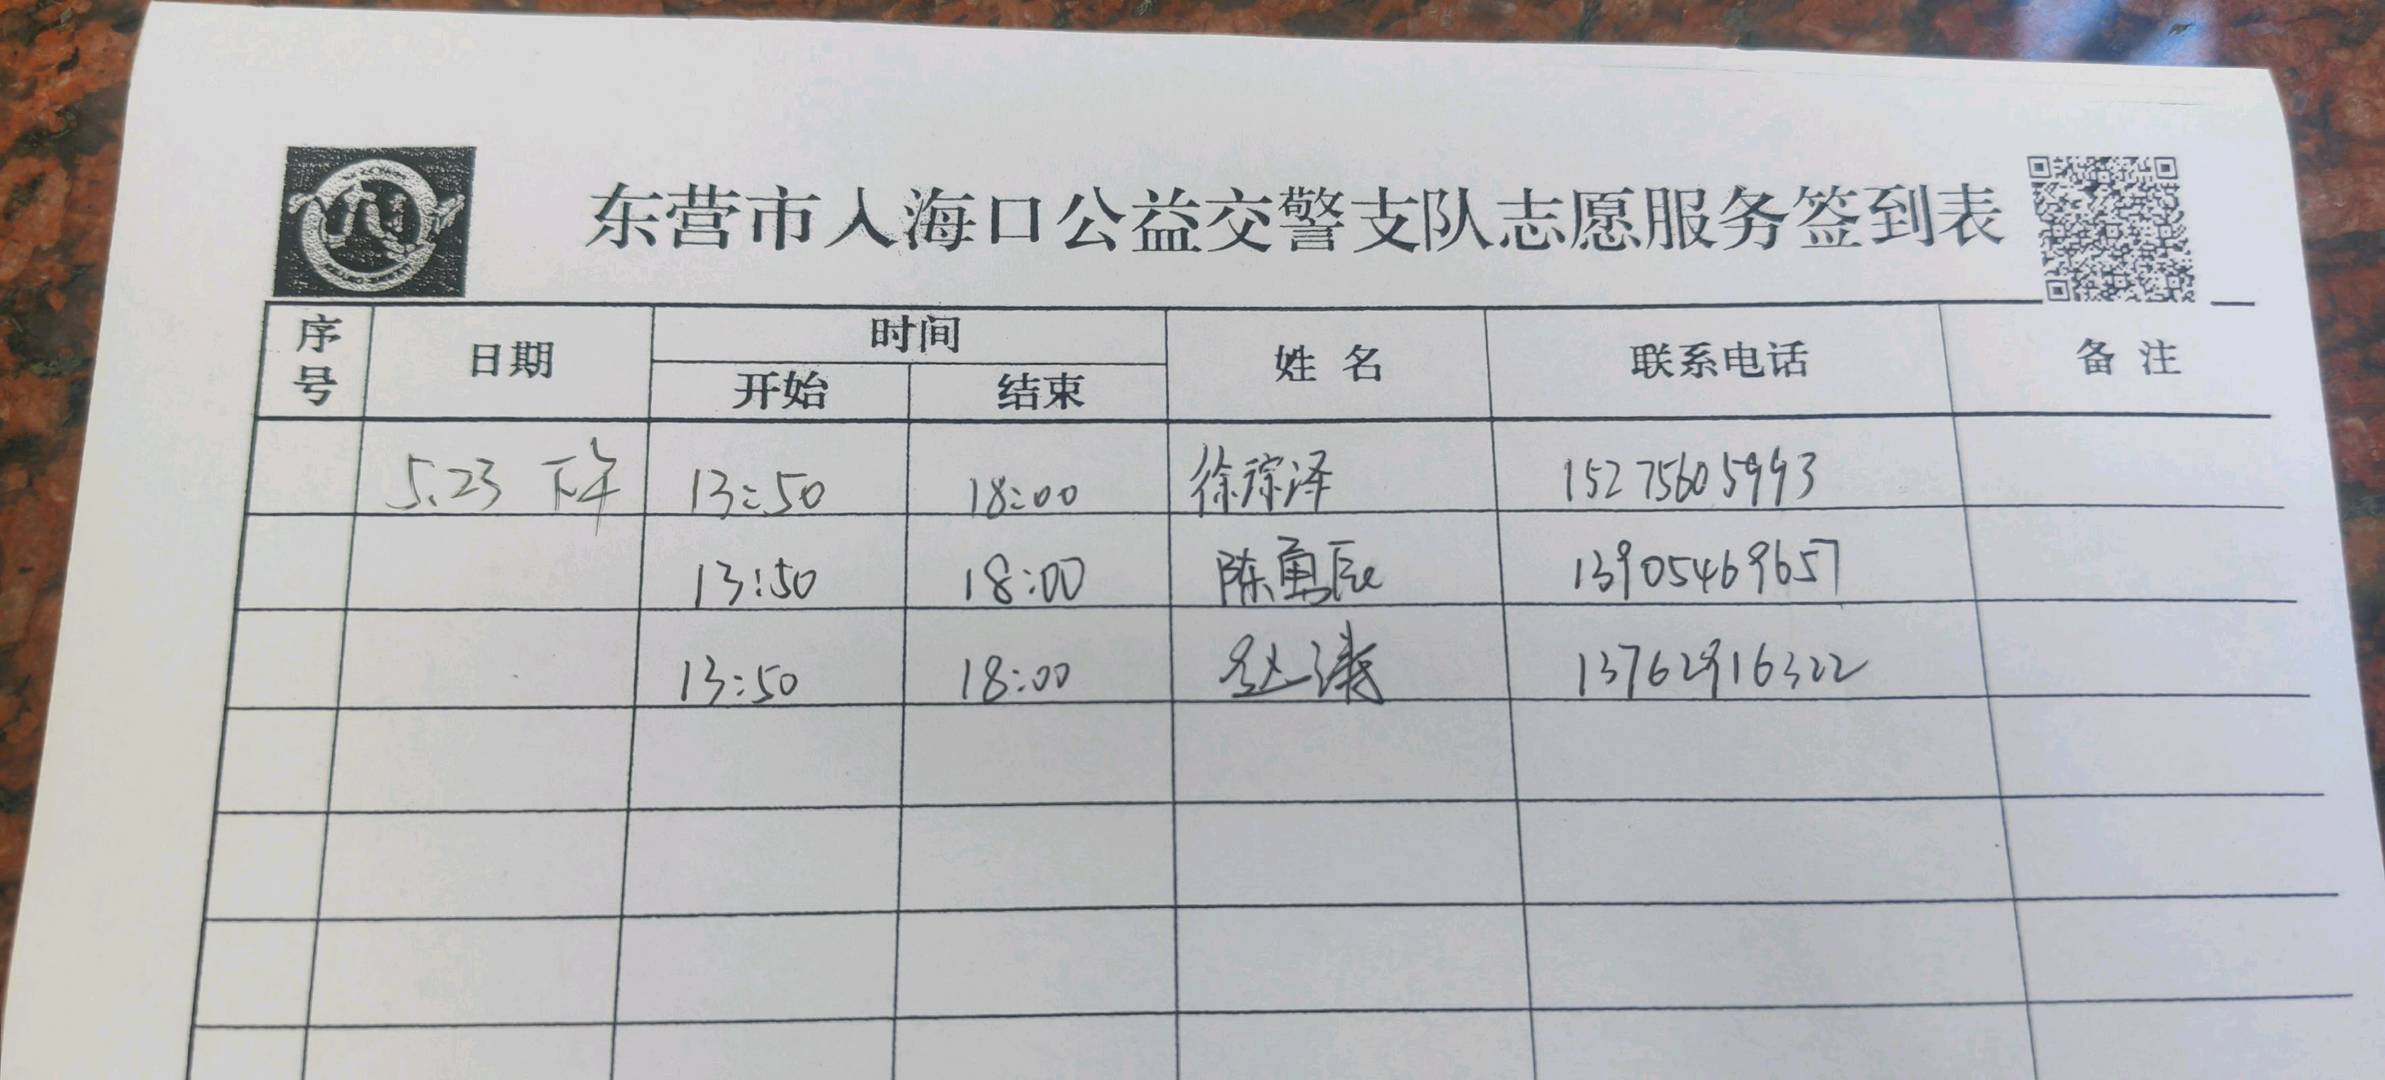 东营市入海口公益交警支队志愿服务签到表
序号 日期 时间 姓名 联系电话 备注
开始 结束
5.23 下午 13:50 18:00 徐琮泽 15275605993
13:50 18:00 陈勇辰 13905469657
13:50 18:00 赵 13762916322